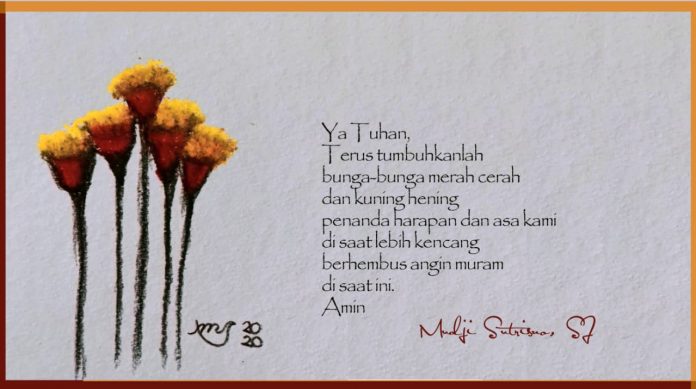 Ya Tuhan,
Terus tumbuhkanlah
bunga-bunga merah cerah
dan kuning hening
penanda harapan dan asa kami
di saat lebih kencang
berhembus angin muram
di saat ini.
Amin
Mudji Sutrisno, SJ
20
20